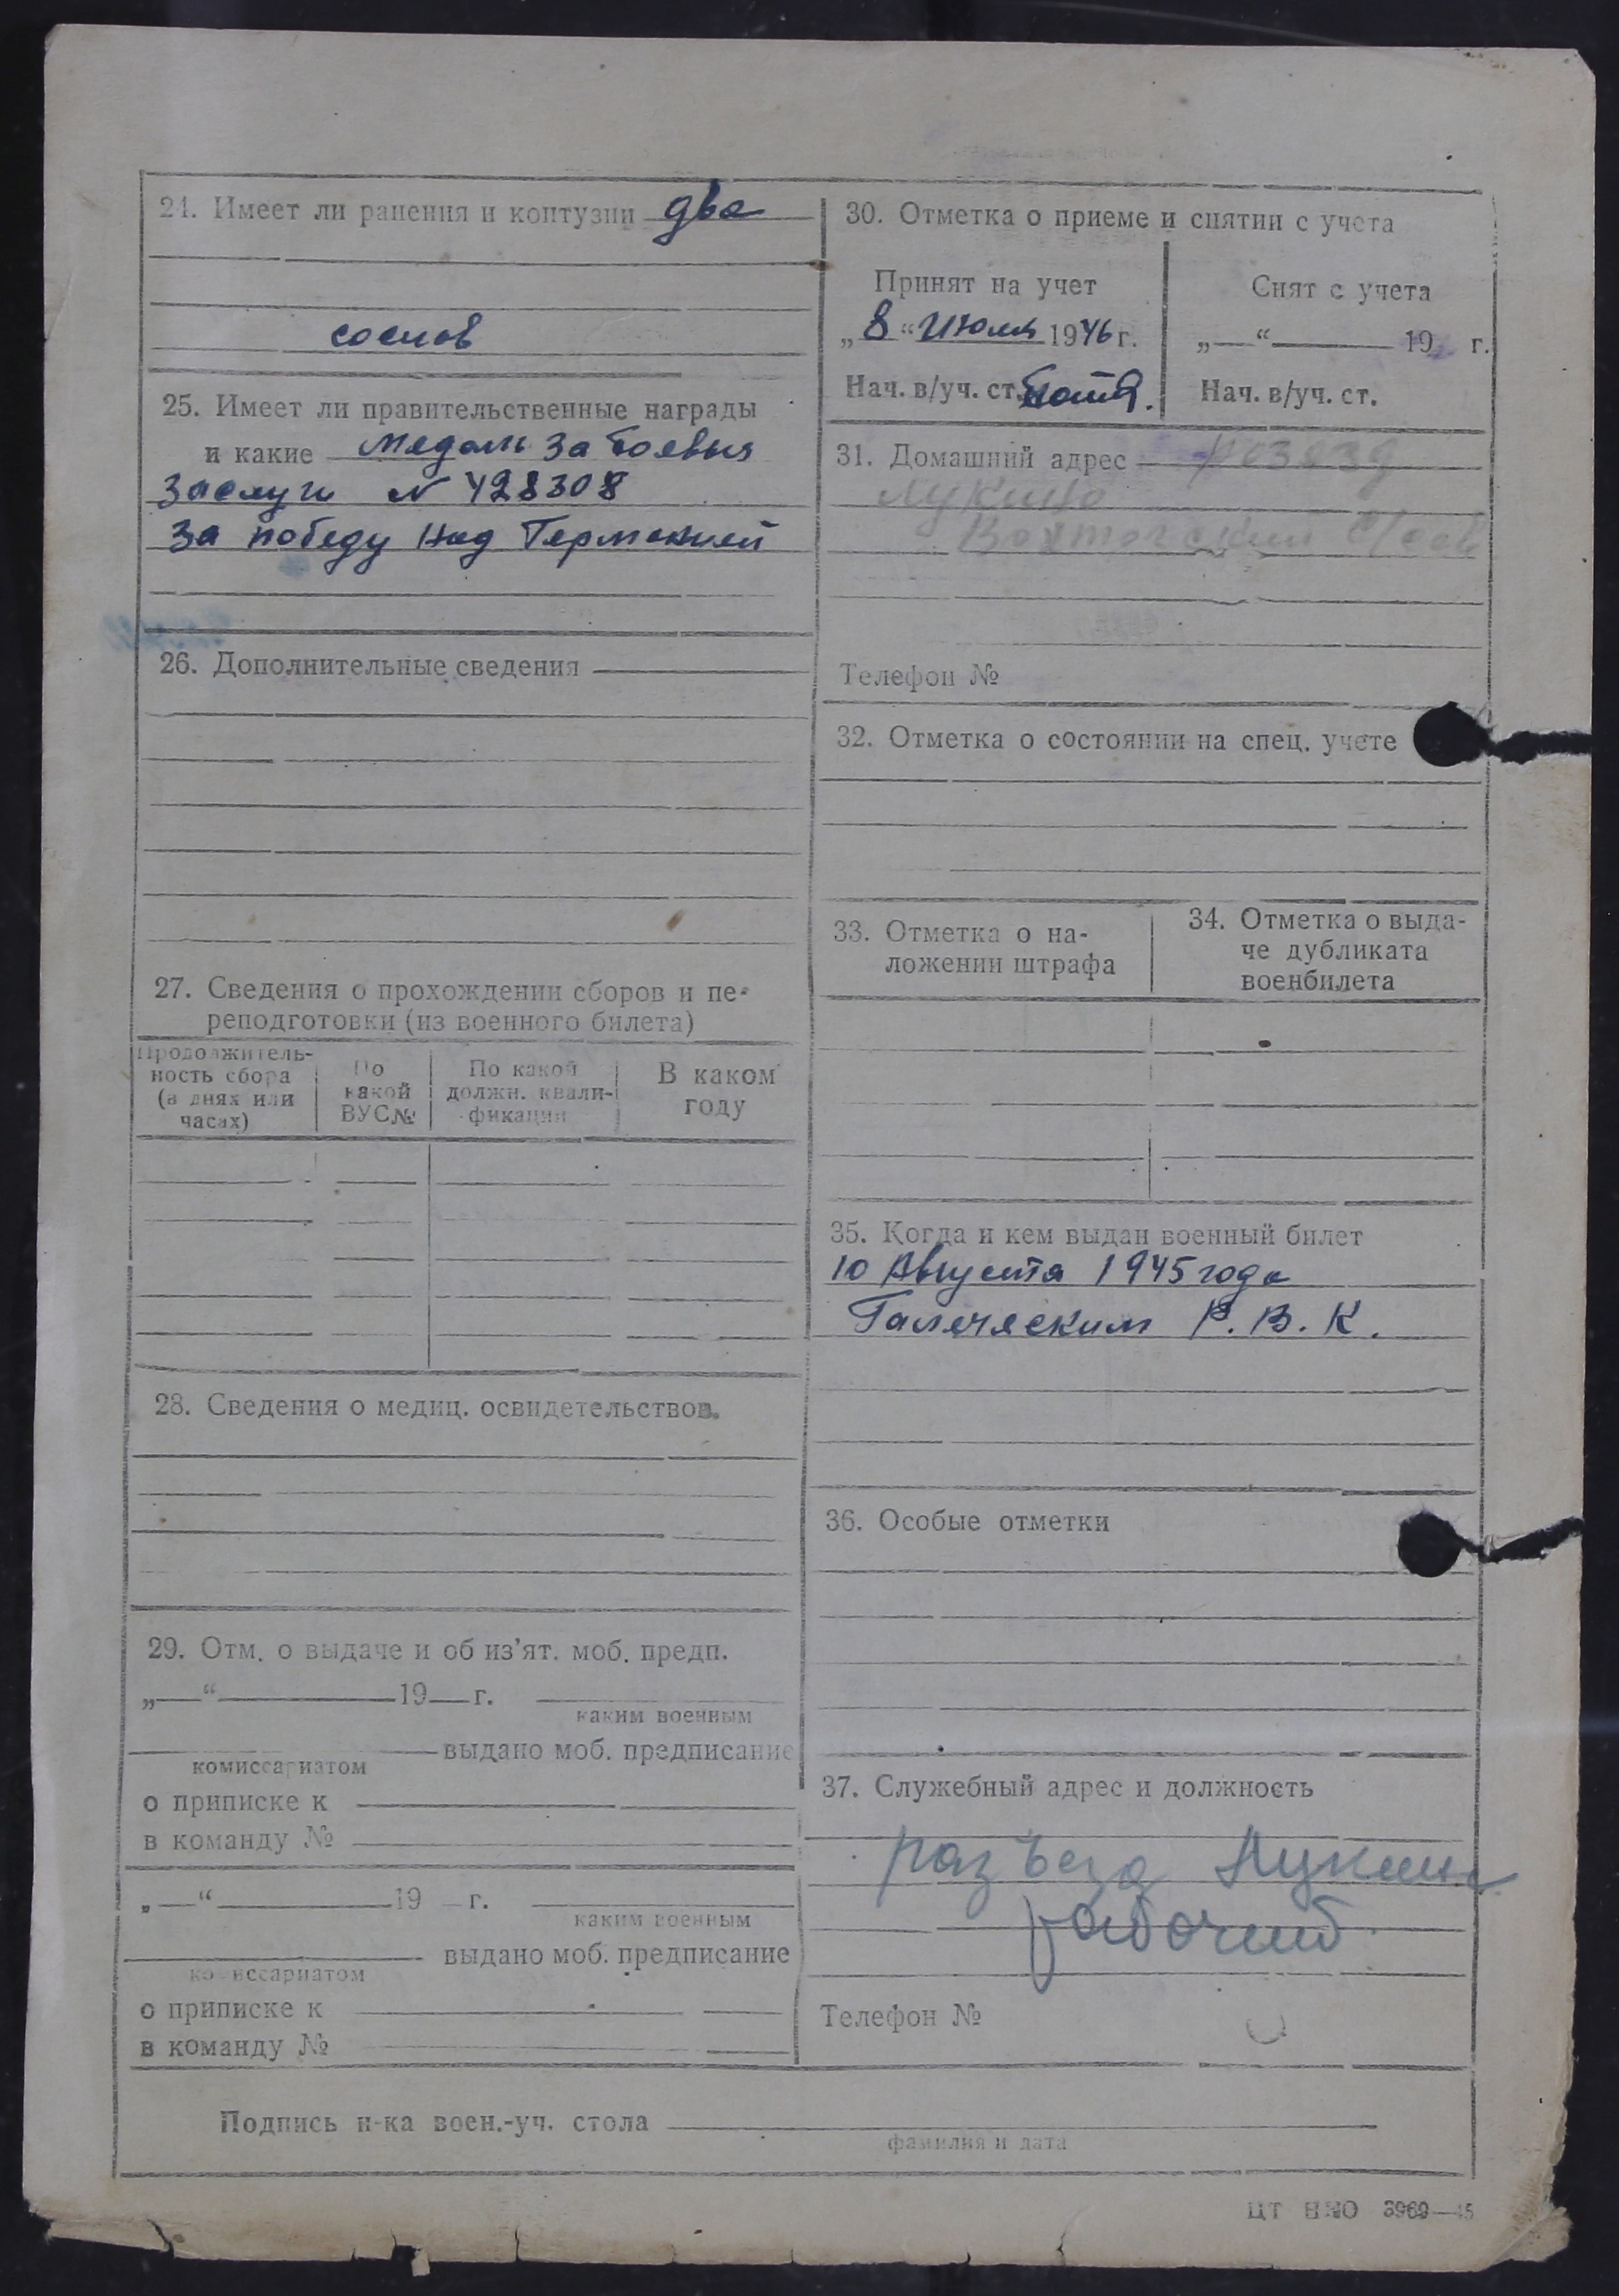 24. Имеет ли ранения и контузии два
соснов
25. Имеет ли правительственные награды
и какие Медаль За боевыя
заслуги N 428308
За победу Над Германией
26. Дополнительные сведения
27. Сведения о прохождении сборов и пе-
реподготовки (из военного билета)
Продолжитель-
ность сбора
(в днях или
часах)
По
какой
ВУС№
По какой
должн. квали-
фикации
В каком
году
28. Сведения о медиц. освидетельствов.
29. Отм. о выдаче и об из’ят. моб. предп.
„—“ 19 г.
каким военным
выдано моб. предписание
комиссариатом
о приписке к
в команду №
„—“ 19 г.
каким военным
выдано моб. предписание
комиссариатом
о приписке к
в команду №
30. Отметка о приеме и снятии с учета
Принят на учет
„8“ Июля 1946 г.
Нач. в/уч. ст.
Снят с учета
„—“ 19 г.
Нач. в/уч. ст.
31. Домашний адрес
Лукино
Вохтогский с/сов
Телефон №
32. Отметка о состоянии на спец. учете
33. Отметка о на-
ложении штрафа
34. Отметка о выда-
че дубликата
военбилета
35. Когда и кем выдан военный билет
10 Августа 1945 года
Галическим Р. В. К.
36. Особые отметки
37. Служебный адрес и должность
разъезд Лукино
рабочий
Телефон №
Подпись н-ка воен.-уч. стола
фамилия и дата
3969—45